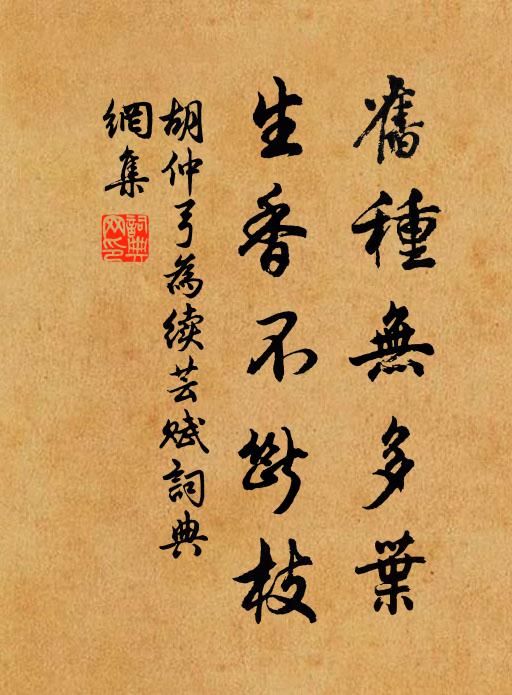 舊種無多葉
生香不斷枝
胡仲弓為續芸賦詞典
網集
詞典
网印